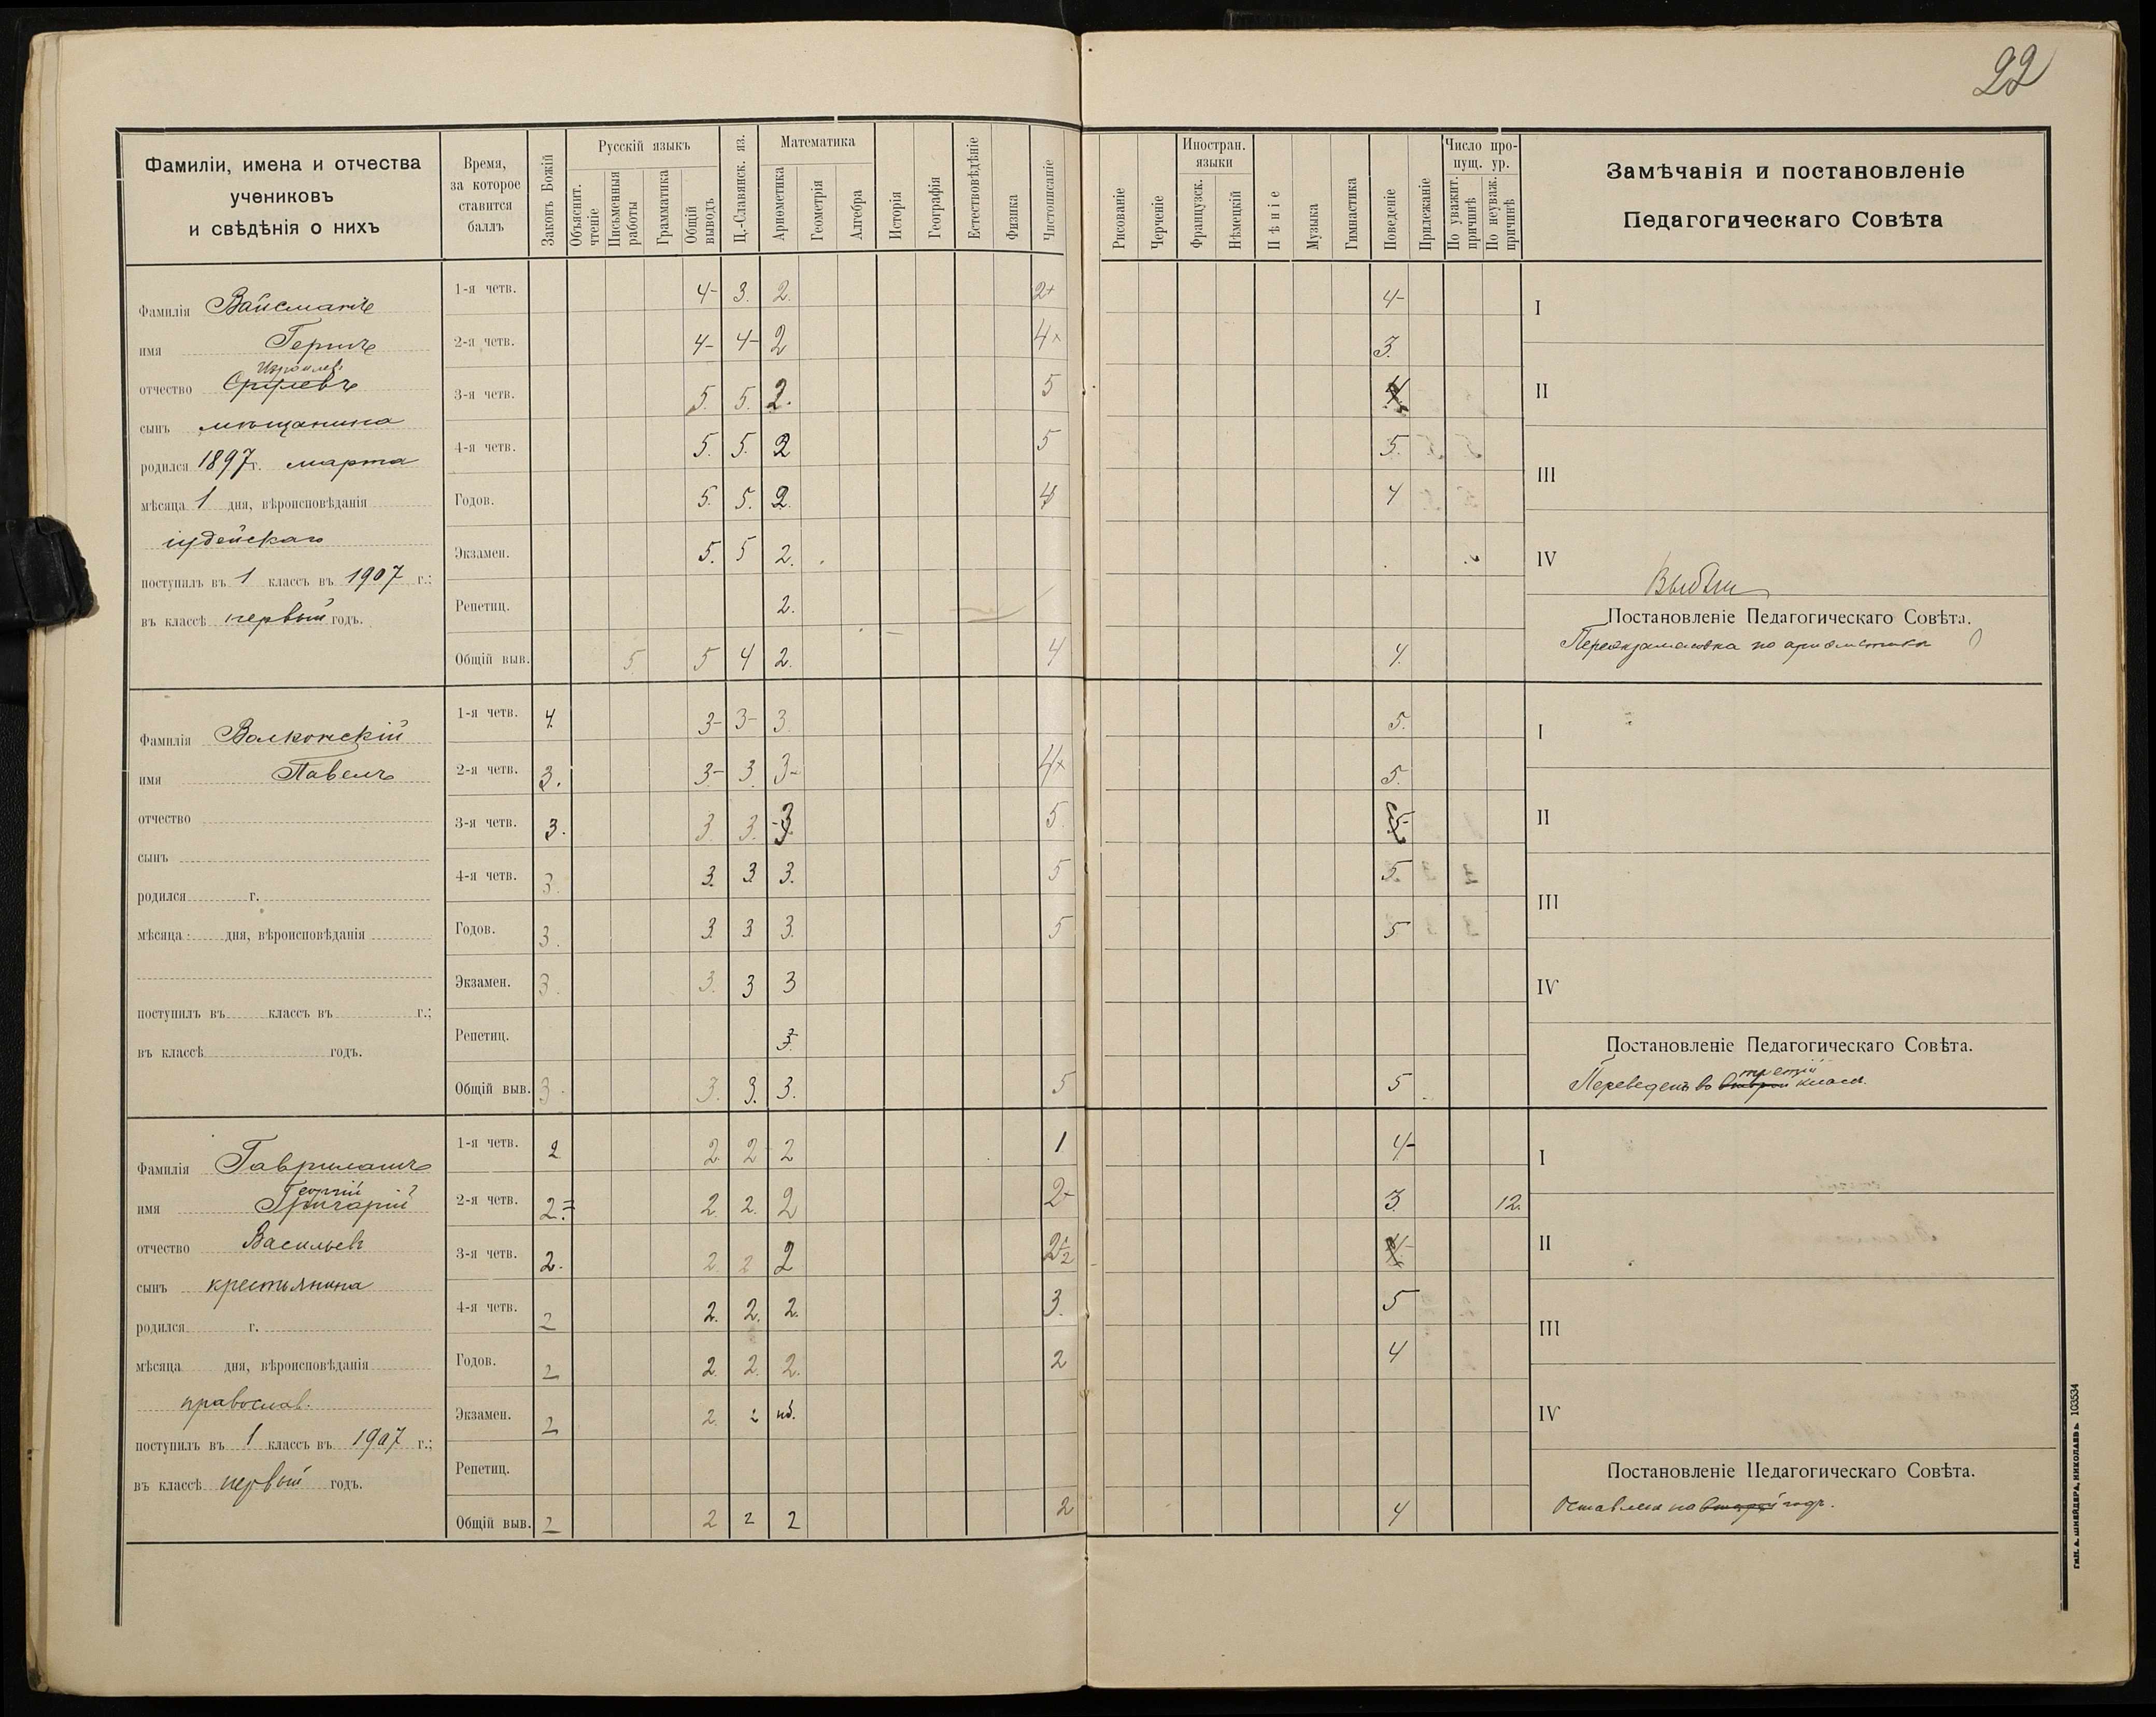 22
Фамиліи, имена и отчества
учениковъ
и свѣдѣнія о нихъ
Время,
за которое
ставится
баллъ
Законъ Божій
Русскій языкъ
Объяснит.
чтеніе
Письменныя
работы
Грамматика
Общій
выводъ
Ц.-Славянск. яз.
Математика
Ариѳметика
Геометрія
Алгебра
Исторія
Географія
Естествовѣдѣніе
Физика
Чистописаніе
Рисованіе
Черченіе
Иностран.
языки
Французск.
Нѣмецкій
Пѣніе
Музыка
Гимнастика
Поведеніе
Прилежаніе
Число про-
пущ. ур.
По уважит.
причинѣ
По неуваж.
причинѣ
Замѣчанія и постановленіе
Педагогическаго Совѣта
Фамилія Вайсманъ
имя Гершъ
Изроилев.
отчество
сынъ мѣщанина
родился 1897 г. марта
мѣсяца 1 дня, вѣроисповѣданія
іудейскаго
поступилъ въ 1 классъ въ 1907 г.;
въ классѣ первый годъ.
1-я четв. 4- 3. 2. 2+ 4-
2-я четв. 4- 4- 2 4+ 3.
3-я четв. 5. 5. 2. 5
4-я четв. 5. 5. 2 5 5.
Годов. 5. 5. 2. 4
Экзамен. 5. 5 2.
Репетиц. 2.
Общій выв. 5 5 4 2. 4 4.
I
II
III
IV
Постановленіе Педагогическаго Совѣта.
Переэкзаменовка по ариѳметикѣ
Фамилія Волконскій
имя Павелъ
отчество
сынъ
родился г.
мѣсяца дня, вѣроисповѣданія
поступилъ въ классъ въ г.;
въ классѣ годъ.
1-я четв. 4. 3- 3- 3. 5.
2-я четв. 3. 3- 3. 3- 4+ 5.
3-я четв. 3. 3. 3. 3. 5.
4-я четв. 3. 3. 3 3. 5 5.
Годов. 3. 3. 3. 3. 5 5
Экзамен. 3. 3. 3 3
Репетиц. 3.
Общій выв. 3. 3. 3. 3. 5 5
I
II
III
IV
Постановленіе Педагогическаго Совѣта.
третій
Переведенъ во второй классъ.
Фамилія Гаврилашъ
Георгій
имя Григорій
отчество Васильев
сынъ крестьянина
родился г.
мѣсяца дня, вѣроисповѣданія
православ.
поступилъ въ 1 классъ въ 1907 г.;
въ классѣ первый годъ.
1-я четв. 2 2 2 2 1 4-
2-я четв. 2 2. 2. 2 2+ 3. 12.
3-я четв. 2. 2. 2 2
4-я четв. 2 2. 2. 2. 3. 5
Годов. 2 2. 2. 2. 2 4
Экзамен. 2 2. 2 нб.
Репетиц.
Общій выв. 2 2 2 2 2 4
I
II
III
IV
Постановленіе Педагогическаго Совѣта.
Оставленъ на второй годъ.
тип. А. Шнейдера, Николаевъ 103534